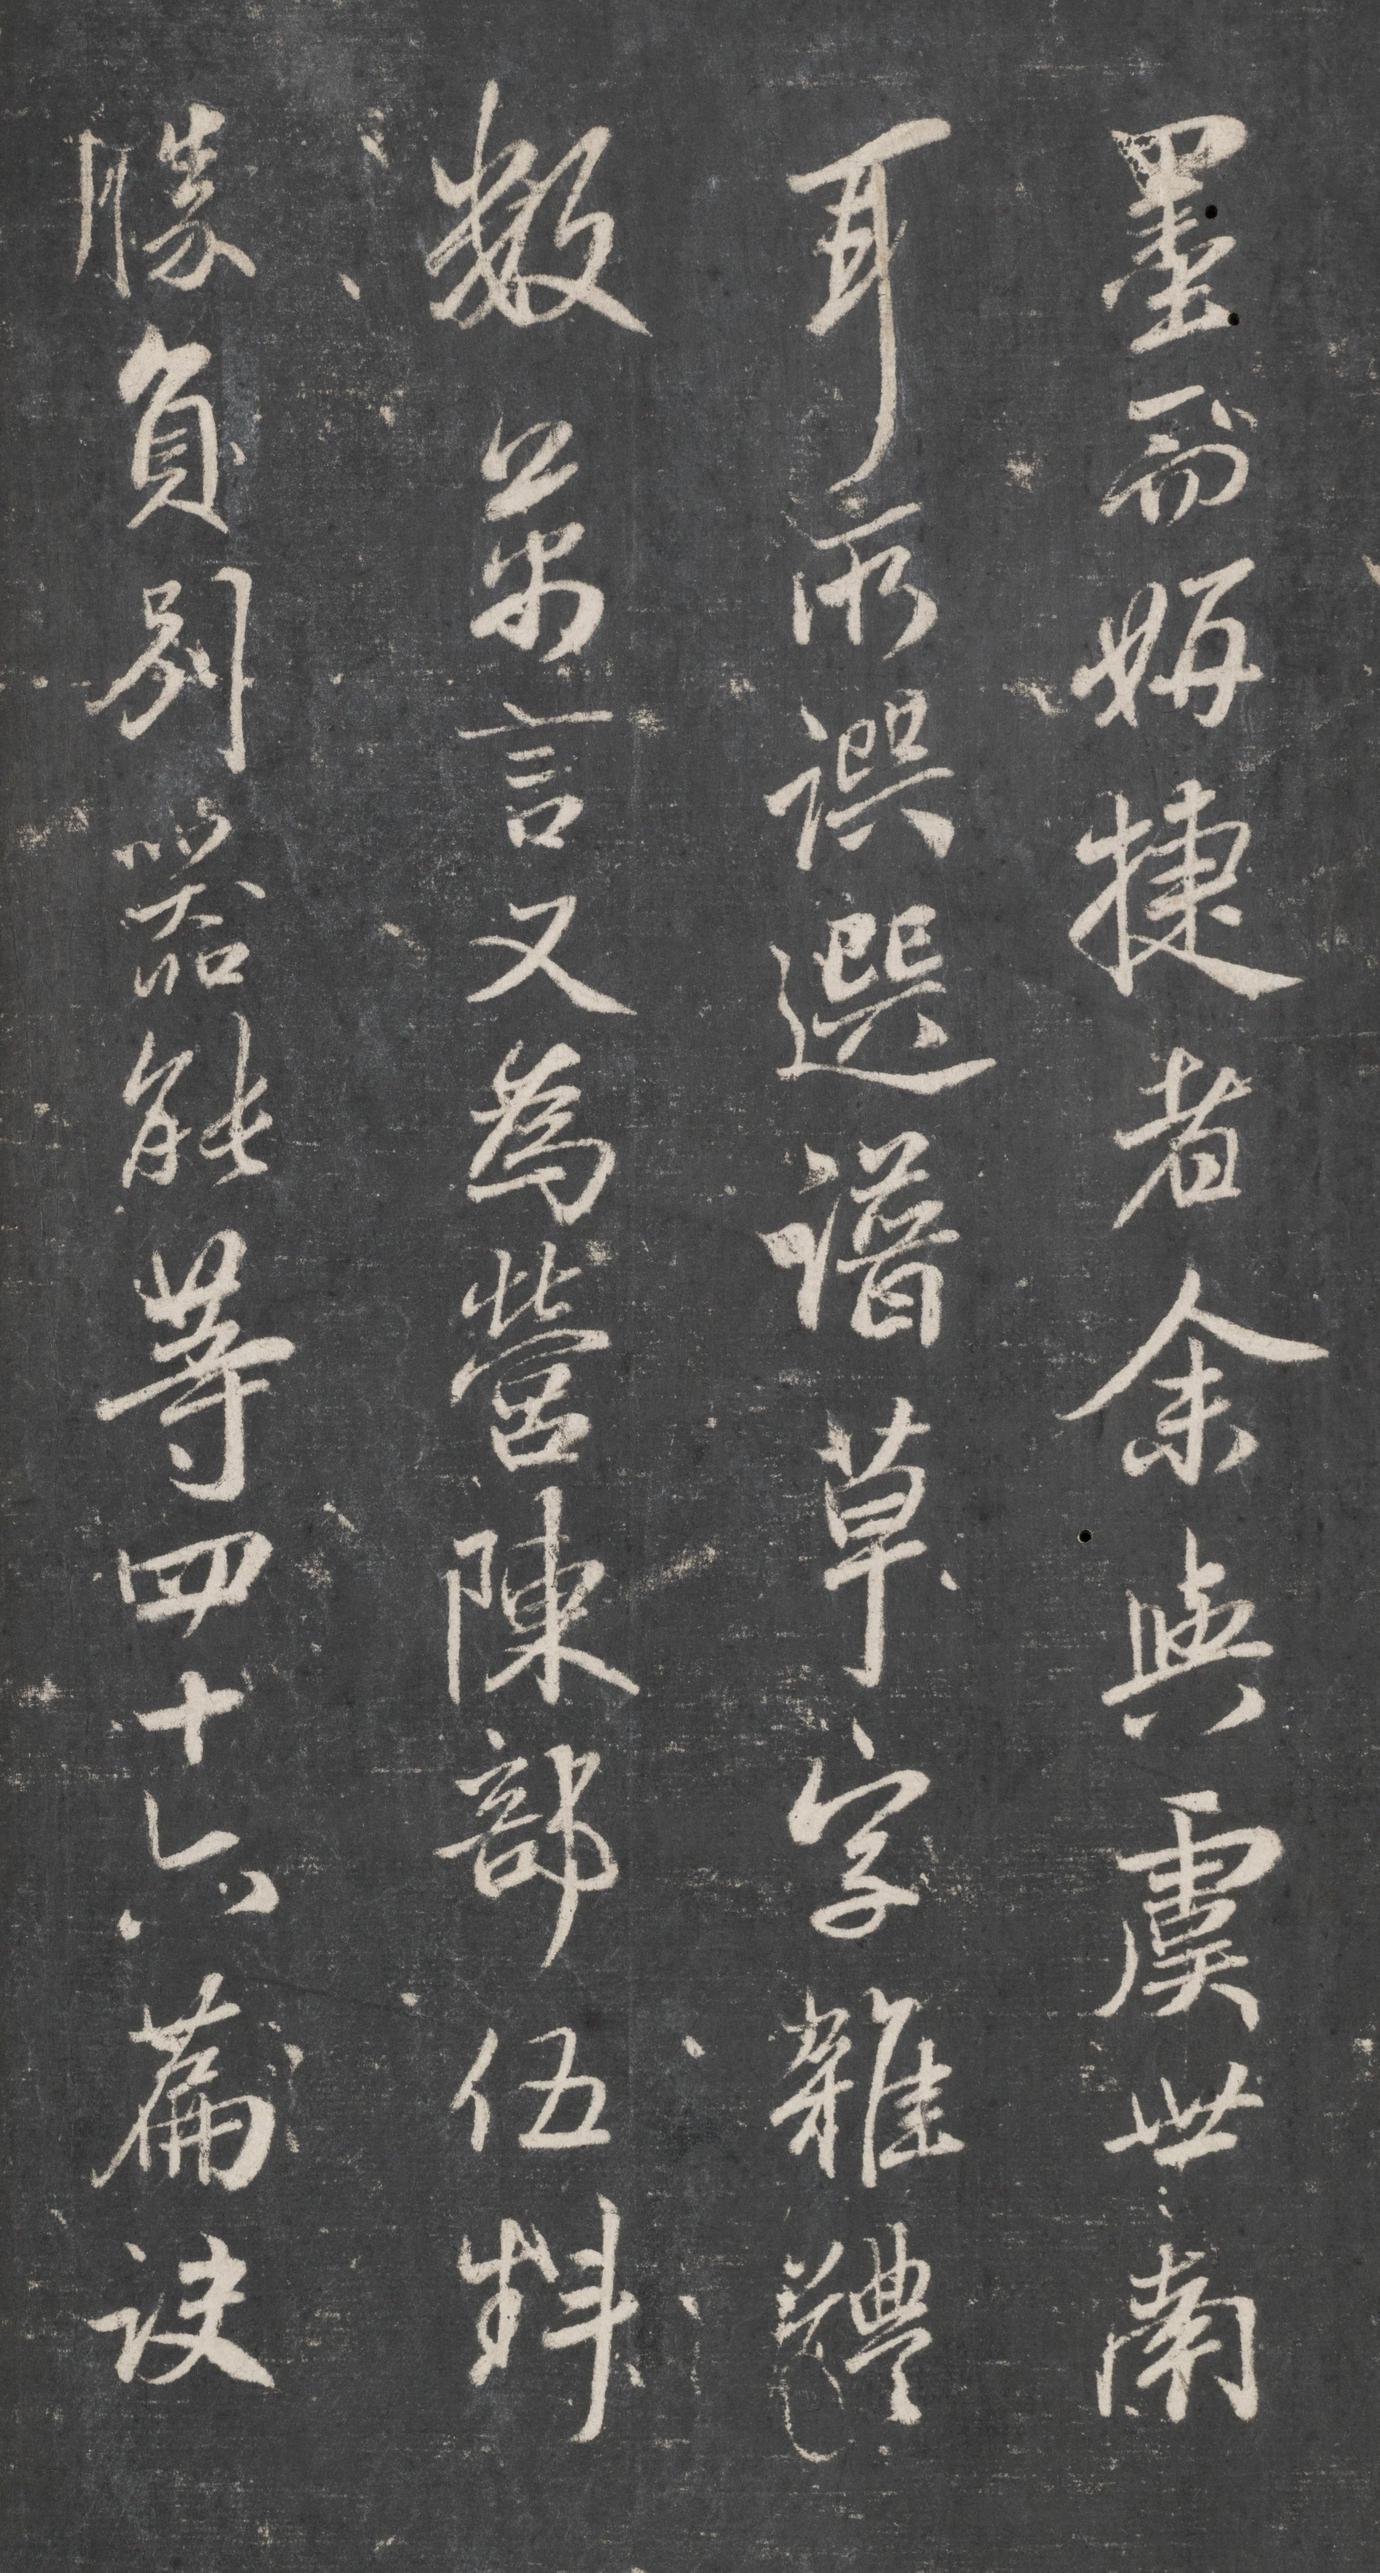 墨而妍捷者余與虞世南
耳所譔選譜草字雜體
數萬言又為營陳部伍料
勝負別器能等四十六篇訣